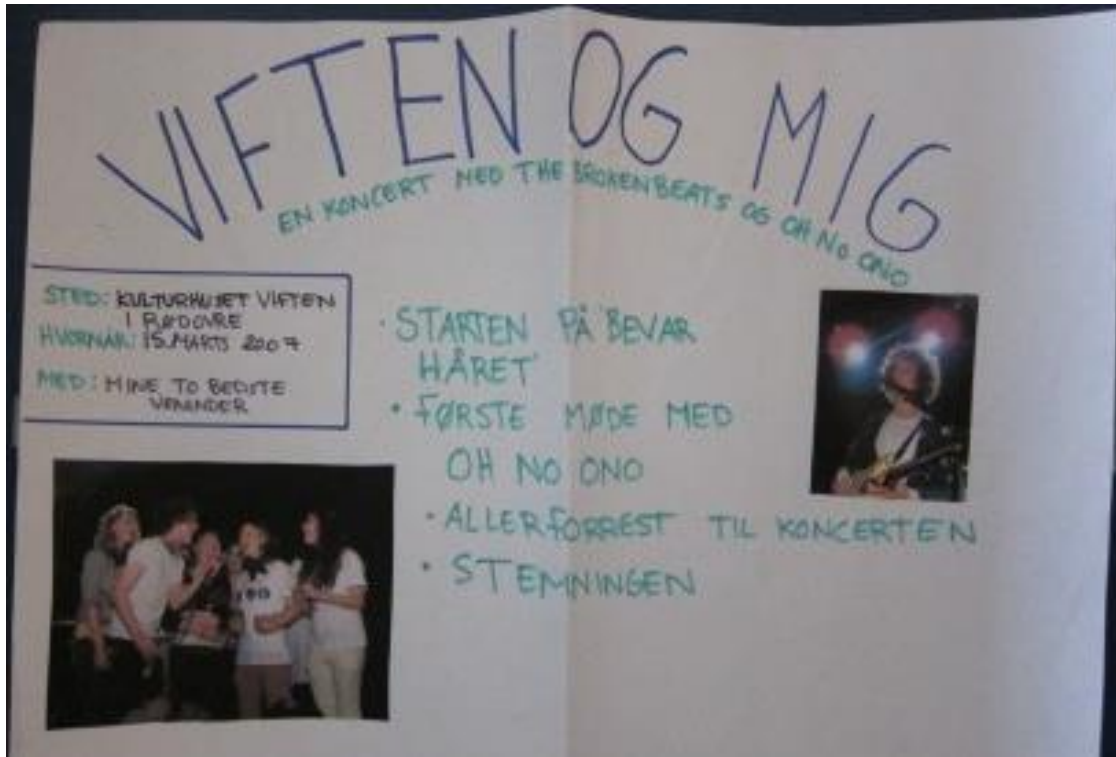 VIFTEN OG MIG
EN KONCERT MED THE BROKENBEATS OG OH NO ONO
STED: KULTURHUSET VIFTEN
I RØDOVRE
HVORNÅR: 15. MARTS 2007
MED: MINE TO BEDSTE
VENINDER
• STARTEN PÅ 'BEVAR
HÅRET'
• FØRSTE MØDE MED
OH NO ONO
• ALLERFORREST TIL KONCERTEN
• STEMNINGEN